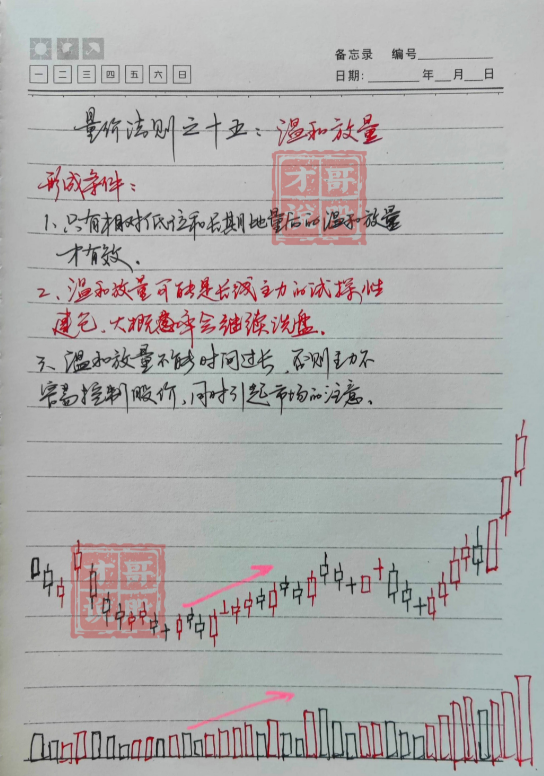 备忘录 编号
一 二 三 四 五 六 日
日期: 年 月 日
量价法则之十五：温和放量
形成条件：
1、只有相对低位和长期地量后的温和放量
才有效.
2、温和放量可能是长线主力的试探性
建仓，大概率会继续洗盘。
3、温和放量不能时间过长，否则主力不
容易控制股价，同时引起市场的注意。
才哥
说股
才哥
说股